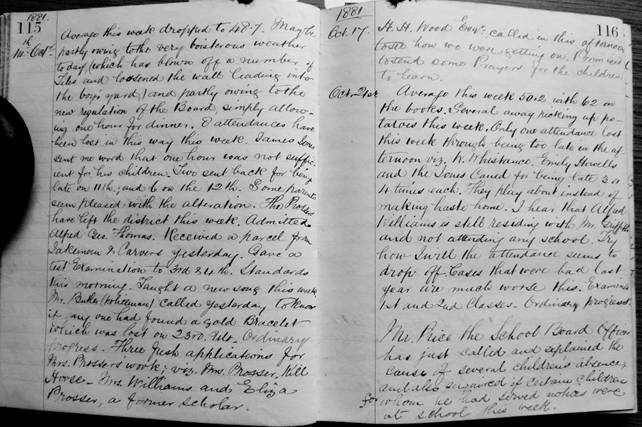 1881.
115
14th Octr
Average this week dropped to 48.7. May be
partly owing to the very boisterous weather
to day which has blown off a number of
Tiles and loosened the wall leading into
the boys yard; and partly owing to the
new regulation of the Board, simply allow-
ing one hour for dinner. 7 attendances have
been lost in this way this week. James
sent me word that one hour was not suffic-
ent for his children. Two sent back for being
late on 11th; and 6 on the 12th. Some parents
seem pleased with the alteration. The Prossers
have left the district this week. Admitted
Alfred Geo. Thomas. Received a parcel from
Jakeman & Carvers yesterday. Gave a
test Examination to 3rd & 4th Standards
this morning. Taught a new song this week.
Mr. Baker (Policeman) called yesterday to know
if any one had found a gold Bracelet
which was lost on 23rd. Ordinary
progress. Three fresh applications for
Mrs. Prossers work; viz. Mrs. Prosser, Hill
House - Mrs. Williams and Eliza
Prosser, a former scholar.
1881
116
Oct. 17.
H. H. Wood Esqr called in this afternoon
to see how we were getting on. Promised
to send some Prayers for the children
to learn.
Oct. 21st
Average this week 50.2 with 62 on
the books. Several away picking up po-
tatoes this week. Only one attendance lost
this week through being too late in the af-
ternoon viz. W. Whistance. Emily Howells
and the Jones Caned for being late 3 or
4 times each. They play about instead of
making haste home. I hear that Alfred
Williams is still residing with Mr.
and not attending any school. Try
how I will the attendance seems to
drop off. Cases that were bad last
year are much worse this. Examined
1st and 2nd Classes. Ordinary progress.
Mr. Price the School Board Officer
has just called and explained the
cause of several childrens absence,
and also enquired if certain children
for whom he had served notices were
at school this week.